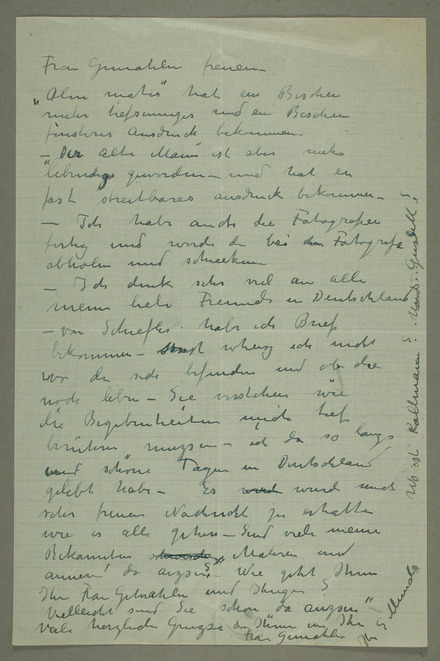 Frau Gemahlin freuen –
"Alma mater" hat ein Bischen
mehr tiefsinniges und ein Bischen
finsteres Ausdruck bekommen –
– Der alte Mann ist aber mehr
lebendig geworden – und hat en
fast streitbares ausdruck bekommen –
– Ich habe auch die Fotografien
fertig und werde die bei den Fotografe
abholen und schecken
– Ich denk sehr viel an alle
meine liebe Freunde in Deutschland
– von Schiefler habe ich Brief
bekommen – ich nicht
wo die sich befinden und ob die
noch leben – Sie verstehen wie
die Begebenheiten mich tief
berühren mussen – ich da so lange
und schöne Tagen in Deutschland
gelebt habe – Es wurde mich
sehr freuen Nachricht zu erhalten
wie es alle gehen – Sind viele meine
Bekannten Malern und
annen da Wie geht Ihnen
Ihr Frau Gemahlin und Jungen?
Vielleicht sind Sie schon da
Viele herzliche Grusse zu Ihnen un Ihr
Frau Gemahlin Ihr E Munch
Wo ist Kollmann?